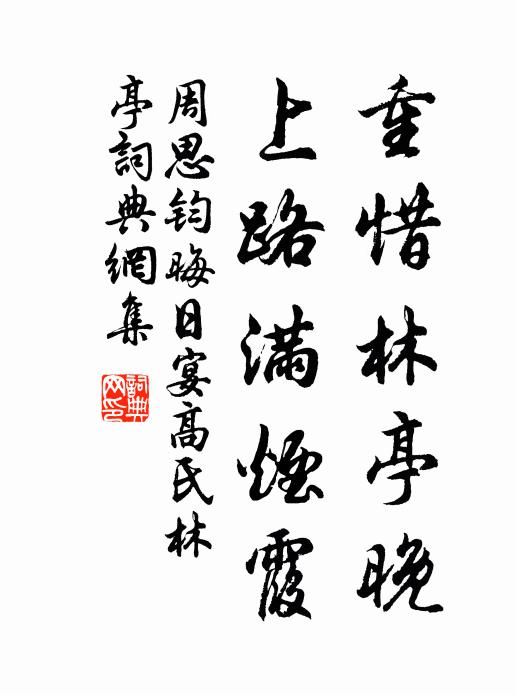 重惜林亭晚
上路滿煙霞
周思鈞晦日宴高氏林
亭詞典網集
詞典
网印